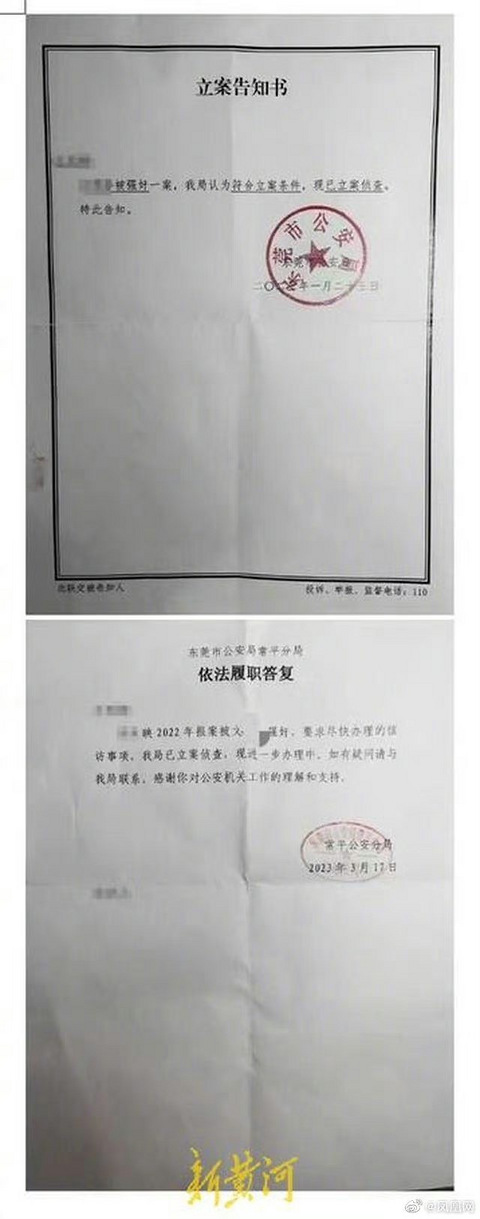 立案告知书
被强奸一案，我局认为符合立案条件，现已立案侦查。
特此告知。
东莞市公安局
年一月二十三日
此联交被告知人
投诉、举报、监督电话：110
东莞市公安局常平分局
依法履职答复
映2022年报案被 强奸、要求尽快办理的信
访事项，我局已立案侦查，现进一步办理中，如有疑问请与
我局联系，感谢你对公安机关工作的理解和支持。
常平公安分局
2023年3月17日
新黄河
@凤凰网